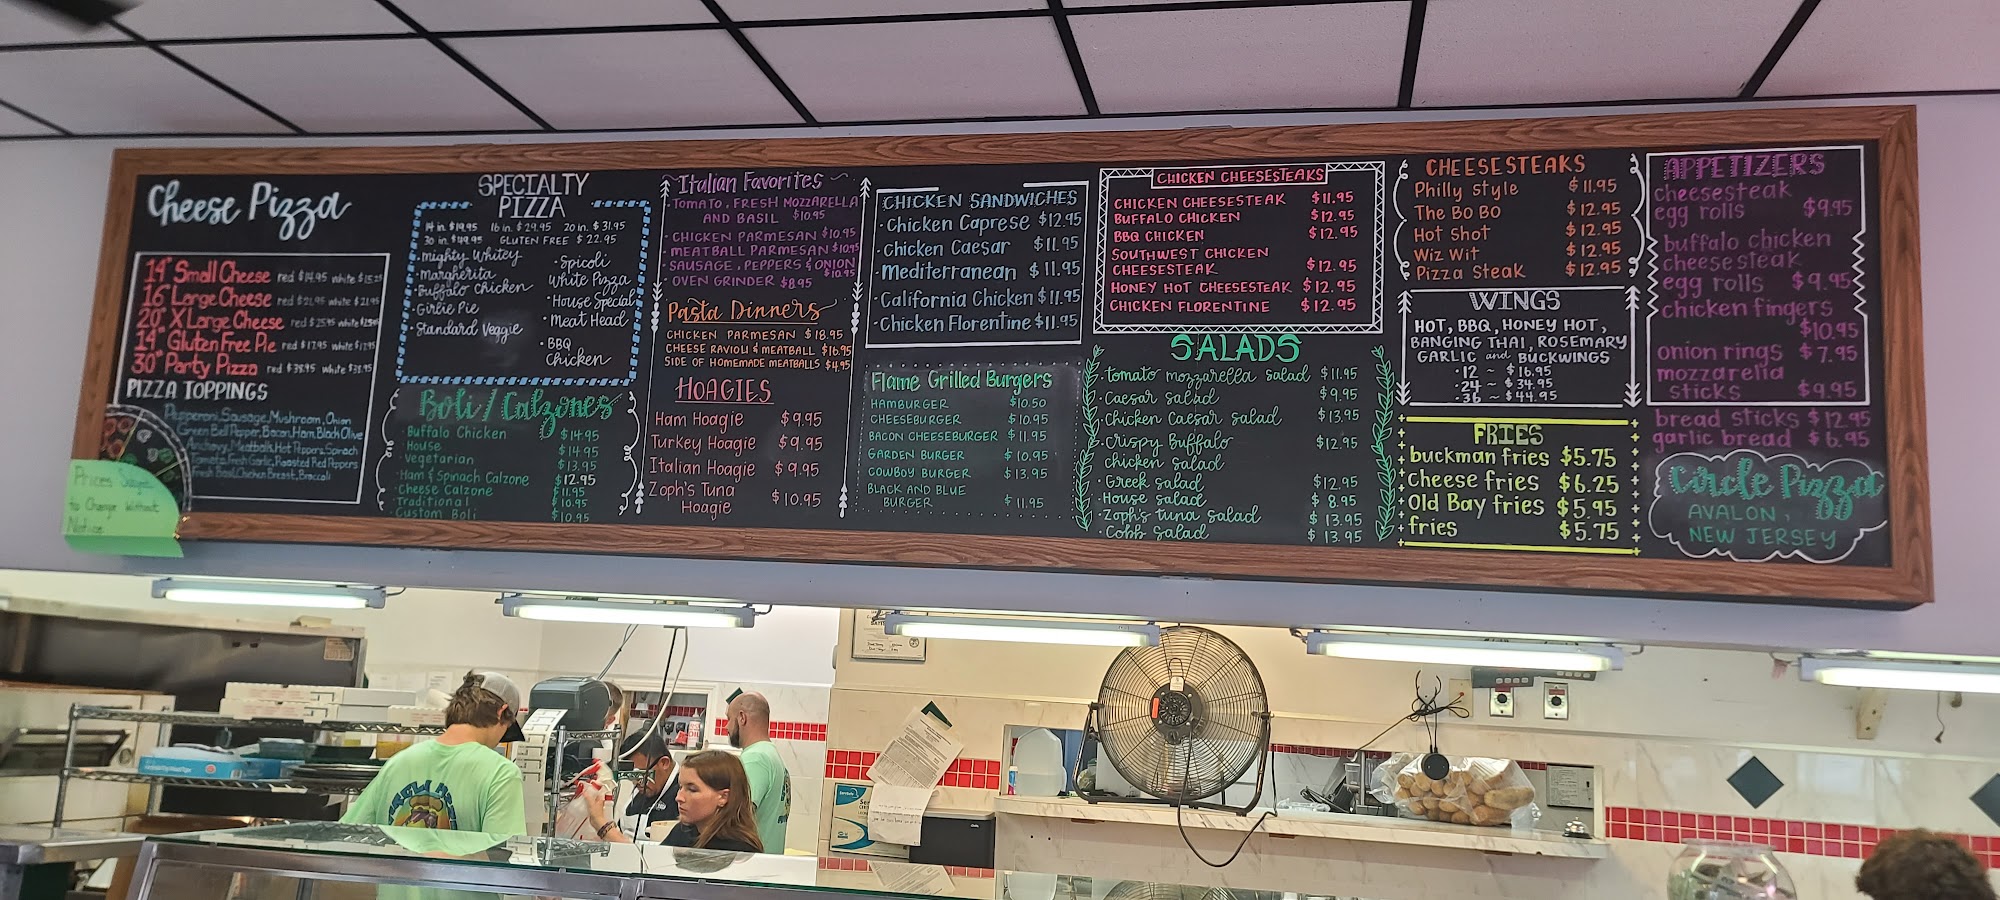 Cheese Pizza
14" Small Cheese red $14.95 white $15.25
16" Large Cheese red $21.95 white $21.95
20" X Large Cheese red $25.95 white
14" Gluten Free Pie red $17.95 white $17.95
30" Party Pizza red $38.95 white $38.95
PIZZA TOPPINGS
Pepperoni, Sausage, Mushroom, Onion
Green Bell Pepper, Bacon, Ham, Black Olive
Anchovy, Meatballs, Hot Peppers, Spinach
Fresh Garlic, Roasted Red Peppers
Fresh Basil, Chicken Breast, Broccoli
Prices Subject
to Change Without
Notice
SPECIALTY
PIZZA
14 in. $19.95 16 in. $29.95 20 in. $31.95
30 in. $49.95 GLUTEN FREE $22.95
·Mighty Whitey
·Margherita
·Buffalo Chicken
·Girlie Pie
·Standard Veggie
·Spicoli
White Pizza
·House Special
·Meat Head
·BBQ
Chicken
Boli/Calzones
·Buffalo Chicken $14.95
·House $14.95
·Vegetarian $13.95
·Ham & Spinach Calzone $12.95
·Cheese Calzone $11.95
·Traditional $10.95
·Custom Boli $10.95
Italian Favorites
·TOMATO, FRESH MOZZARELLA
AND BASIL $10.95
·CHICKEN PARMESAN $10.95
·MEATBALL PARMESAN $10.95
·SAUSAGE, PEPPERS & ONION
$10.95
·OVEN GRINDER $8.95
Pasta Dinners
CHICKEN PARMESAN $18.95
CHEESE RAVIOLI & MEATBALL $16.95
SIDE OF HOMEMADE MEATBALLS $4.95
HOAGIES
Ham Hoagie $9.95
Turkey Hoagie $9.95
Italian Hoagie $9.95
Zoph's Tuna
Hoagie $10.95
CHICKEN SANDWICHES
·Chicken Caprese $12.95
·Chicken Caesar $11.95
·Mediterranean $11.95
·California Chicken $11.95
·Chicken Florentine $11.95
Flame Grilled Burgers
HAMBURGER $10.50
CHEESEBURGER $10.95
BACON CHEESEBURGER $11.95
GARDEN BURGER $10.95
COWBOY BURGER $13.95
BLACK AND BLUE
BURGER $11.95
CHICKEN CHEESESTEAKS
CHICKEN CHEESESTEAK $11.95
BUFFALO CHICKEN $12.95
BBQ CHICKEN $12.95
SOUTHWEST CHICKEN
CHEESESTEAK $12.95
HONEY HOT CHEESESTEAK $12.95
CHICKEN FLORENTINE $12.95
SALADS
·tomato mozzarella salad $11.95
·caesar salad $9.95
·Chicken Caesar salad $13.95
·crispy Buffalo $12.95
chicken salad
·Greek salad $12.95
·House salad $8.95
·Zoph's tuna salad $13.95
·Cobb salad $13.95
CHEESESTEAKS
Philly Style $11.95
The Bo Bo $12.95
Hot Shot $12.95
Wiz Wit $12.95
Pizza Steak $12.95
WINGS
HOT, BBQ, HONEY HOT,
BANGING THAI, ROSEMARY
GARLIC and BUCKWINGS
·12 ~ $16.95
·24 ~ $34.95
·36 ~ $44.95
FRIES
buckman fries $5.75
cheese fries $6.25
Old Bay fries $5.95
fries $5.75
APPETIZERS
cheesesteak
egg rolls $9.95
buffalo chicken
cheesesteak
egg rolls $9.95
chicken fingers
$10.95
onion rings $7.95
mozzarella
sticks $9.95
bread sticks $12.95
garlic bread $6.95
Circle Pizza
AVALON,
NEW JERSEY